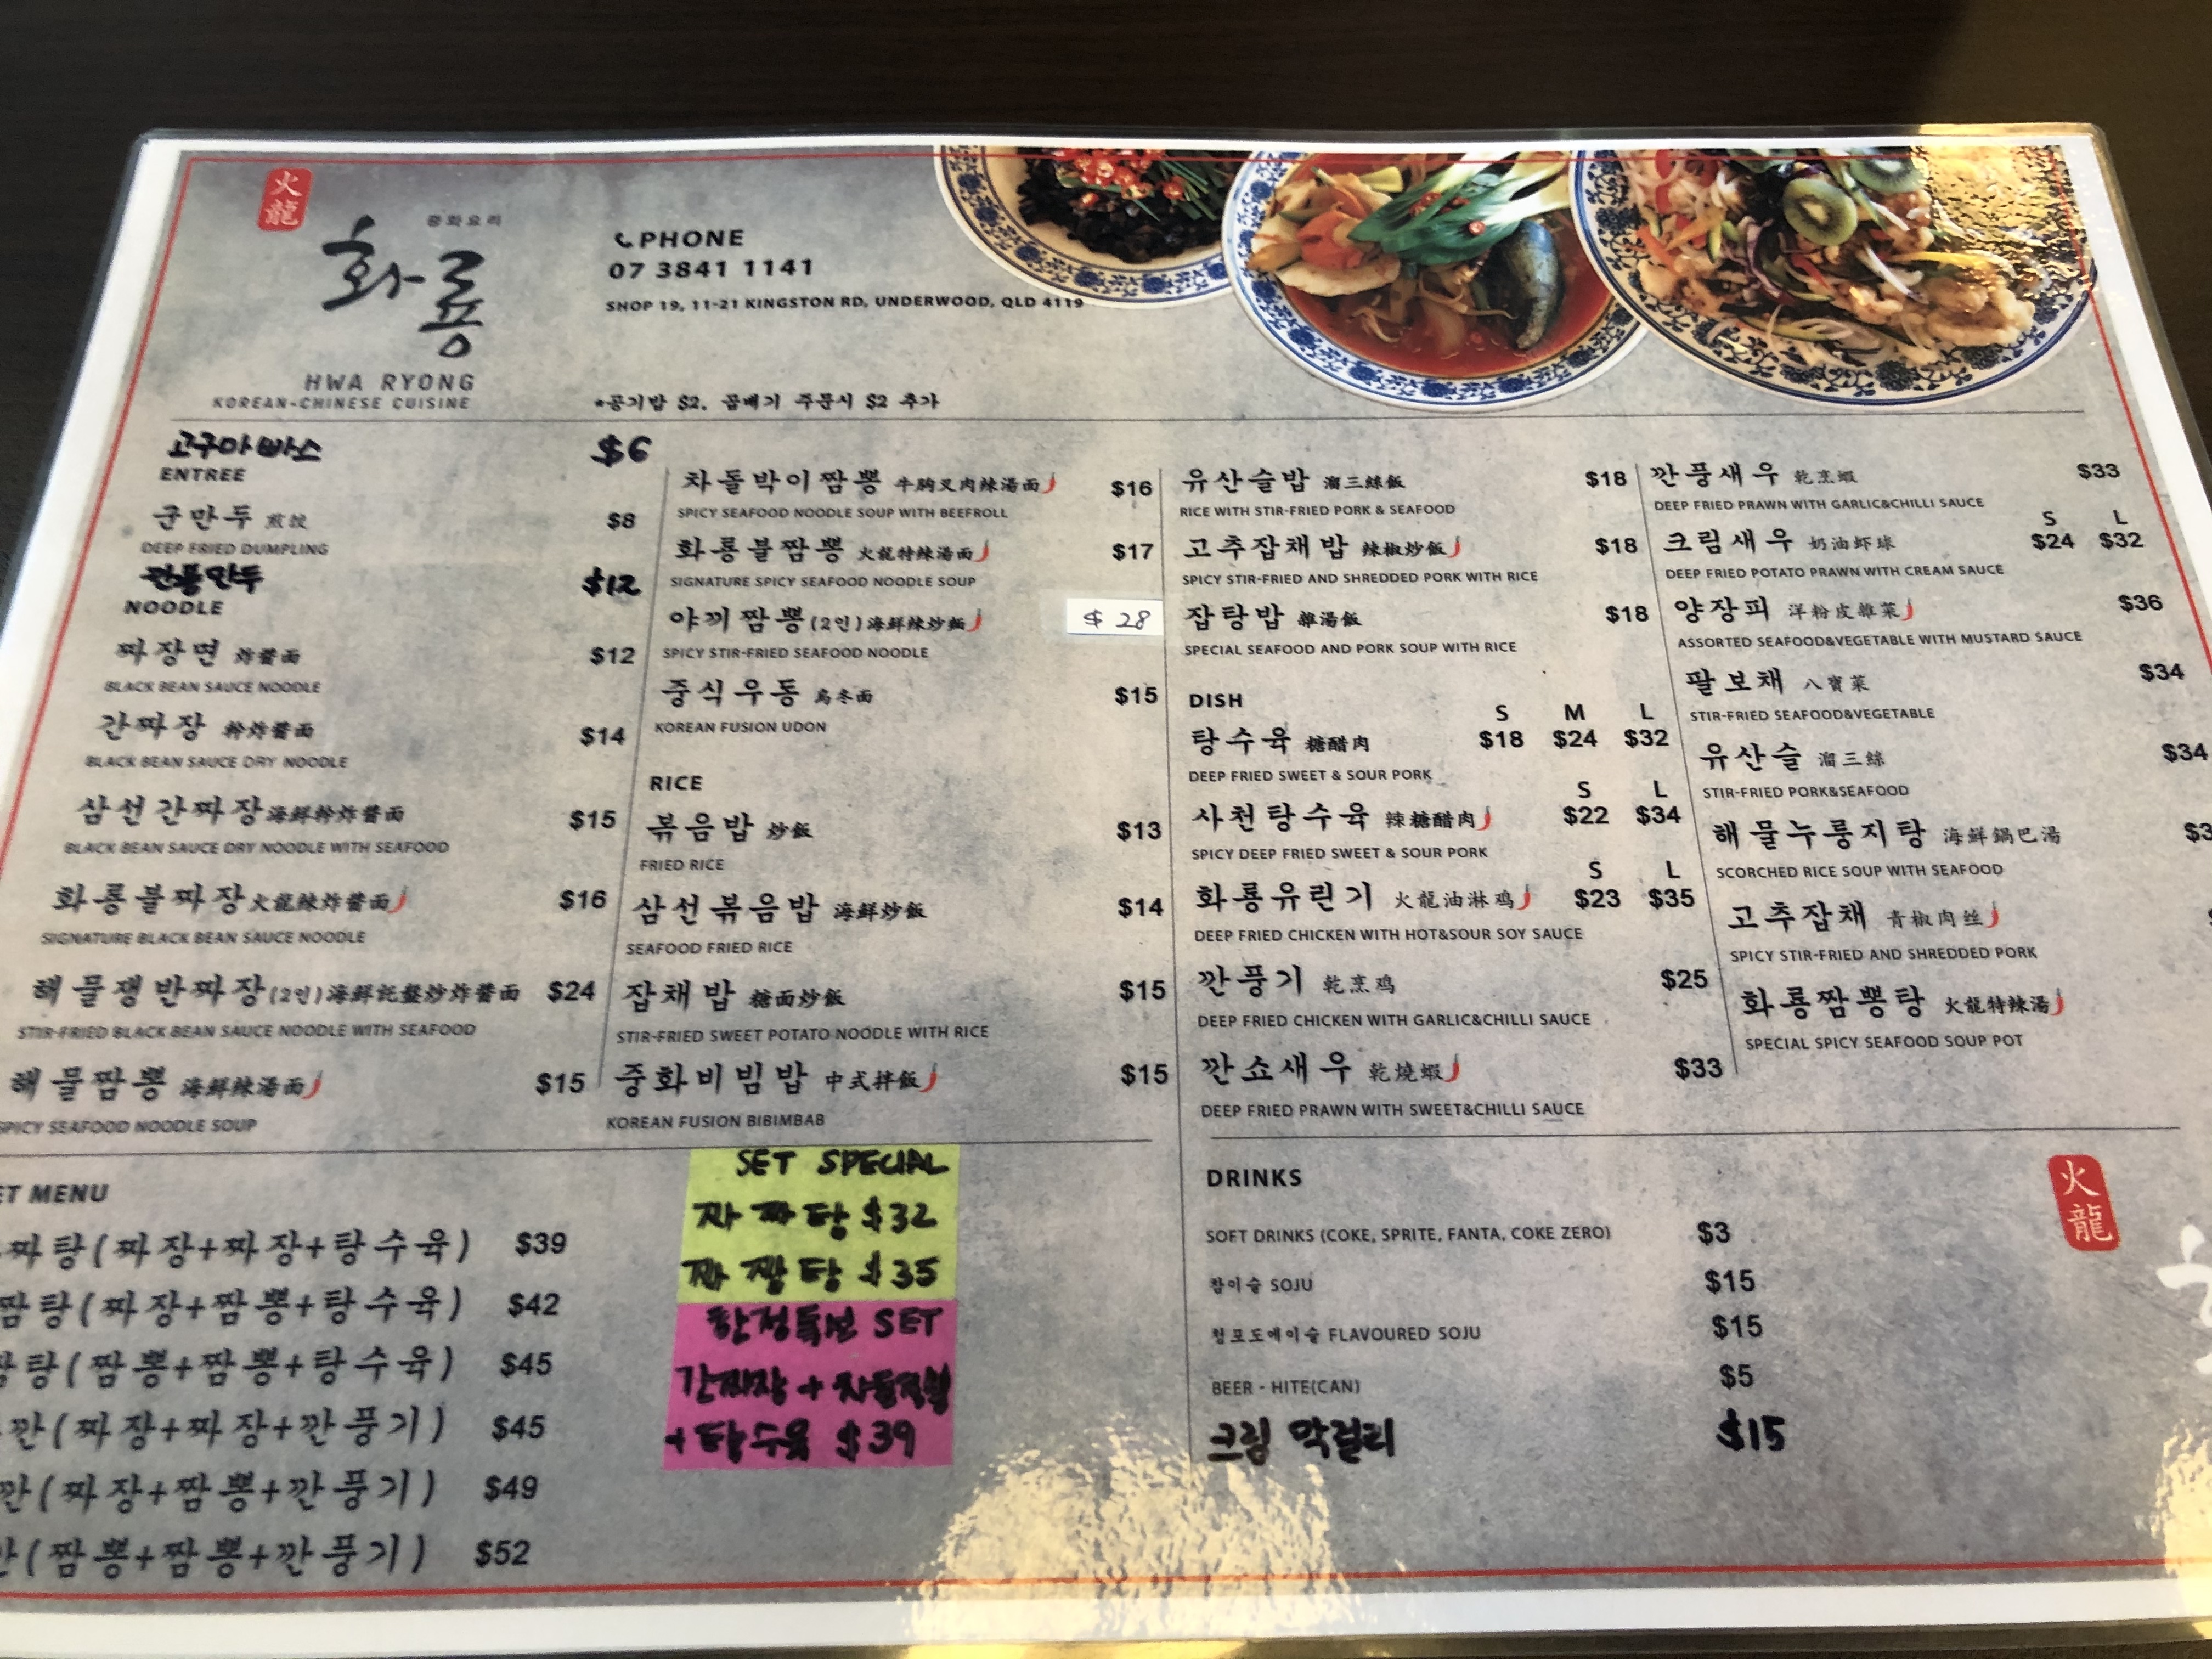 火龍
중화요리
화룡
HWA RYONG
KOREAN-CHINESE CUISINE
PHONE
07 3841 1141
SHOP 19, 11-21 KINGSTON RD, UNDERWOOD, QLD 4119
*공기밥 $2, 곱배기 주문시 $2 추가
고구마빠스 $6
ENTREE
군만두 煎餃 $8
DEEP FRIED DUMPLING
깐풍만두 $12
NOODLE
짜장면 炸醬面 $12
BLACK BEAN SAUCE NOODLE
간짜장 幹炸醬面 $14
BLACK BEAN SAUCE DRY NOODLE
삼선간짜장 海鮮幹炸醬面 $15
BLACK BEAN SAUCE DRY NOODLE WITH SEAFOOD
화룡불짜장 火龍辣炸醬面 $16
SIGNATURE BLACK BEAN SAUCE NOODLE
해물쟁반짜장(2인) 海鮮託盤炒炸醬面 $24
STIR-FRIED BLACK BEAN SAUCE NOODLE WITH SEAFOOD
해물짬뽕 海鮮辣湯面 $15
SPICY SEAFOOD NOODLE SOUP
차돌박이짬뽕 牛胸叉肉辣湯面 $16
SPICY SEAFOOD NOODLE SOUP WITH BEEFROLL
화룡불짬뽕 火龍特辣湯面 $17
SIGNATURE SPICY SEAFOOD NOODLE SOUP
야끼짬뽕(2인) 海鮮辣炒麵 $28
SPICY STIR-FRIED SEAFOOD NOODLE
중식우동 烏冬面 $15
KOREAN FUSION UDON
RICE
볶음밥 炒飯 $13
FRIED RICE
삼선볶음밥 海鮮炒飯 $14
SEAFOOD FRIED RICE
잡채밥 糖面炒飯 $15
STIR-FRIED SWEET POTATO NOODLE WITH RICE
중화비빔밥 中式拌飯 $15
KOREAN FUSION BIBIMBAB
유산슬밥 溜三絲飯 $18
RICE WITH STIR-FRIED PORK & SEAFOOD
고추잡채밥 辣椒炒飯 $18
SPICY STIR-FRIED AND SHREDDED PORK WITH RICE
잡탕밥 雜湯飯 $18
SPECIAL SEAFOOD AND PORK SOUP WITH RICE
DISH
S M L
탕수육 糖醋肉 $18 $24 $32
DEEP FRIED SWEET & SOUR PORK
S L
사천탕수육 辣糖醋肉 $22 $34
SPICY DEEP FRIED SWEET & SOUR PORK
S L
화룡유린기 火龍油淋鸡 $23 $35
DEEP FRIED CHICKEN WITH HOT&SOUR SOY SAUCE
깐풍기 乾烹鸡 $25
DEEP FRIED CHICKEN WITH GARLIC&CHILLI SAUCE
깐쇼새우 乾燒蝦 $33
DEEP FRIED PRAWN WITH SWEET&CHILLI SAUCE
깐풍새우 乾烹蝦 $33
DEEP FRIED PRAWN WITH GARLIC&CHILLI SAUCE
S L
크림새우 奶油虾球 $24 $32
DEEP FRIED POTATO PRAWN WITH CREAM SAUCE
양장피 洋粉皮雜菜 $36
ASSORTED SEAFOOD&VEGETABLE WITH MUSTARD SAUCE
팔보채 八寶菜 $34
STIR-FRIED SEAFOOD&VEGETABLE
유산슬 溜三絲 $34
STIR-FRIED PORK&SEAFOOD
해물누룽지탕 海鮮鍋巴湯 $3
SCORCHED RICE SOUP WITH SEAFOOD
고추잡채 青椒肉丝 $
SPICY STIR-FRIED AND SHREDDED PORK
화룡짬뽕탕 火龍特辣湯
SPECIAL SPICY SEAFOOD SOUP POT
ET MENU
짜탕(짜장+짜장+탕수육) $39
짬탕(짜장+짬뽕+탕수육) $42
탕(짬뽕+짬뽕+탕수육) $45
깐(짜장+짜장+깐풍기) $45
깐(짜장+짬뽕+깐풍기) $49
(짬뽕+짬뽕+깐풍기) $52
SET SPECIAL
짜짜탕 $32
짜짬탕 $35
한정특선 SET
간짜장 + 차돌짬뽕
+ 탕수육 $39
DRINKS
SOFT DRINKS (COKE, SPRITE, FANTA, COKE ZERO) $3
참이슬 SOJU $15
청포도에이슬 FLAVOURED SOJU $15
BEER - HITE(CAN) $5
크림 막걸리 $15
火龍